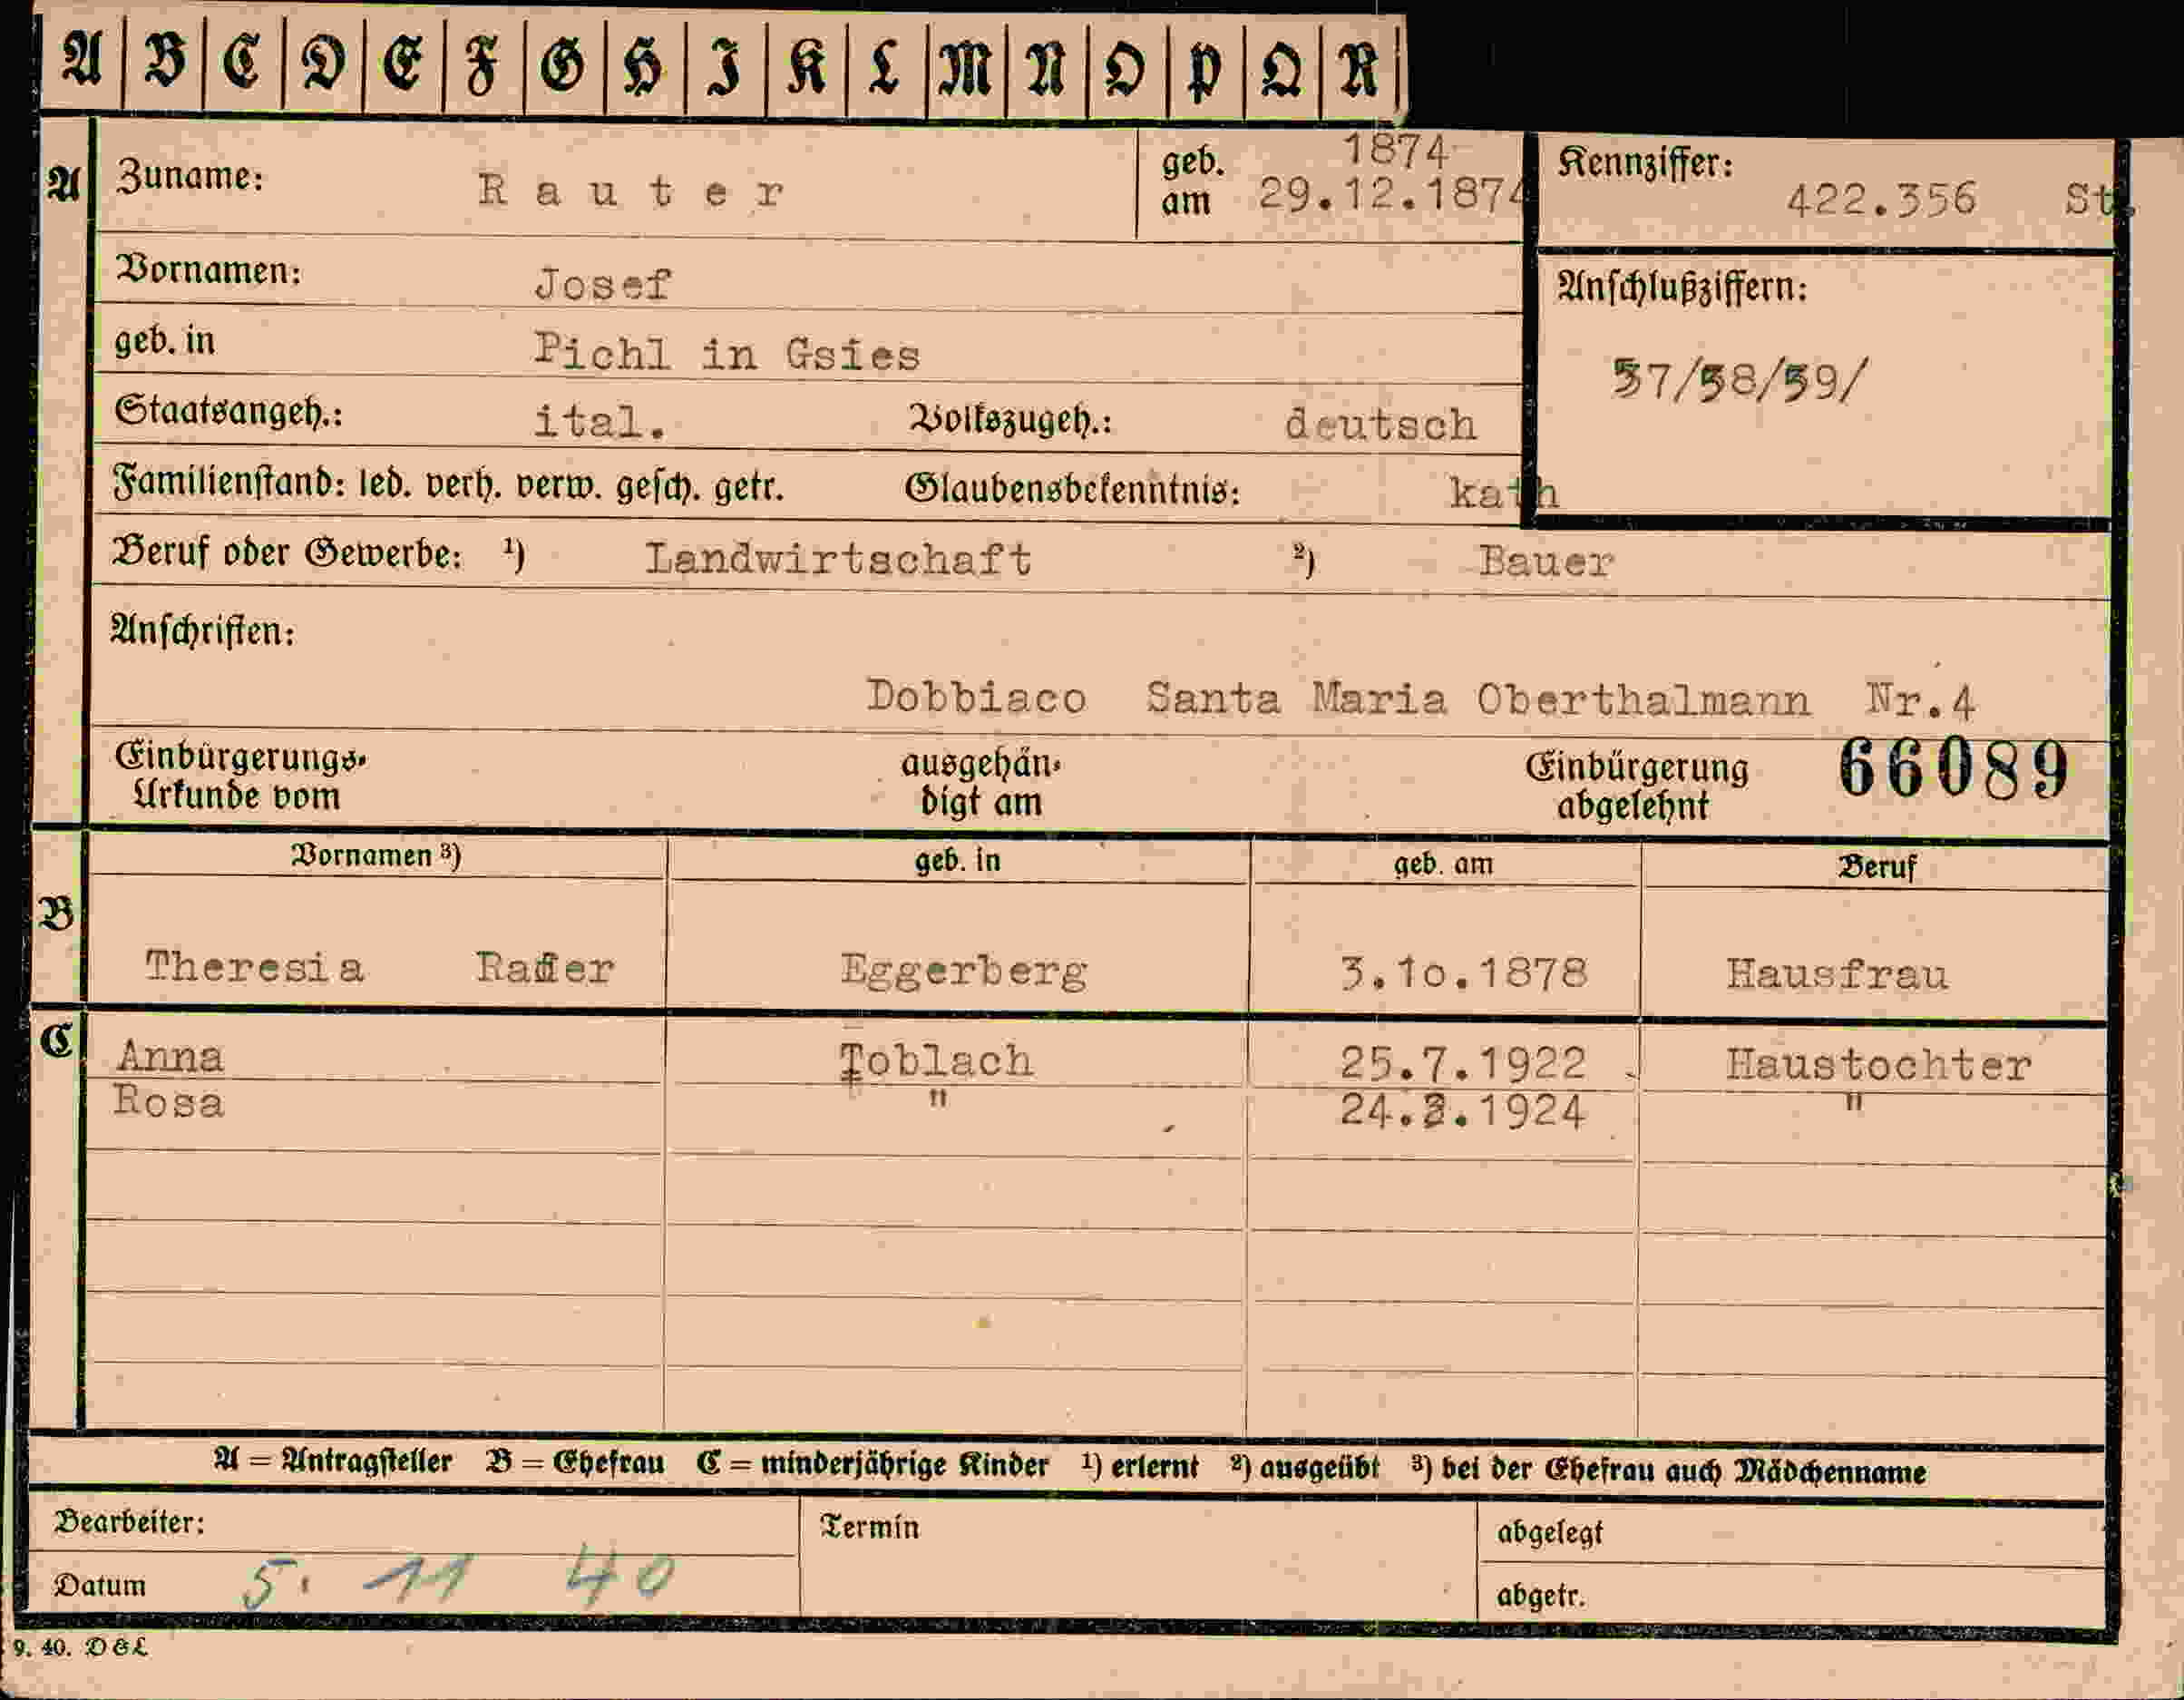 A B C D E F G H I K L M N O P Q R
A Zuname: Rauter geb. am 1874 29.12.1874 Kennziffer: 422.356 St.
Vornamen: Josef Anschlußziffern:
geb. in Pichl in Gsies 57/58/59/
Staatsangeh.: ital. Volkszugeh.: deutsch
Familienstand: led. verh. verw. gesch. getr. Glaubensbekenntnis: kath
Beruf oder Gewerbe: ¹) Landwirtschaft ²) Bauer
Anschriften:
Dobbiaco Santa Maria Oberthalmann Nr.4
Einbürgerungs- ausgehän- Einbürgerung 66089
Urkunde vom digt am abgelehnt
Vornamen ³) geb. in geb. am Beruf
B
Theresia Eggerberg 3.10.1878 Hausfrau
C Anna Toblach 25.7.1922 Haustochter
Rosa " " 
A = Antragsteller B = Ehefrau C = minderjährige Kinder ¹) erlernt ²) ausgeübt ³) bei der Ehefrau auch Mädchenname
Bearbeiter: Termin abgelegt
Datum 5. 11 40 abgetr.
9. 40. D&L